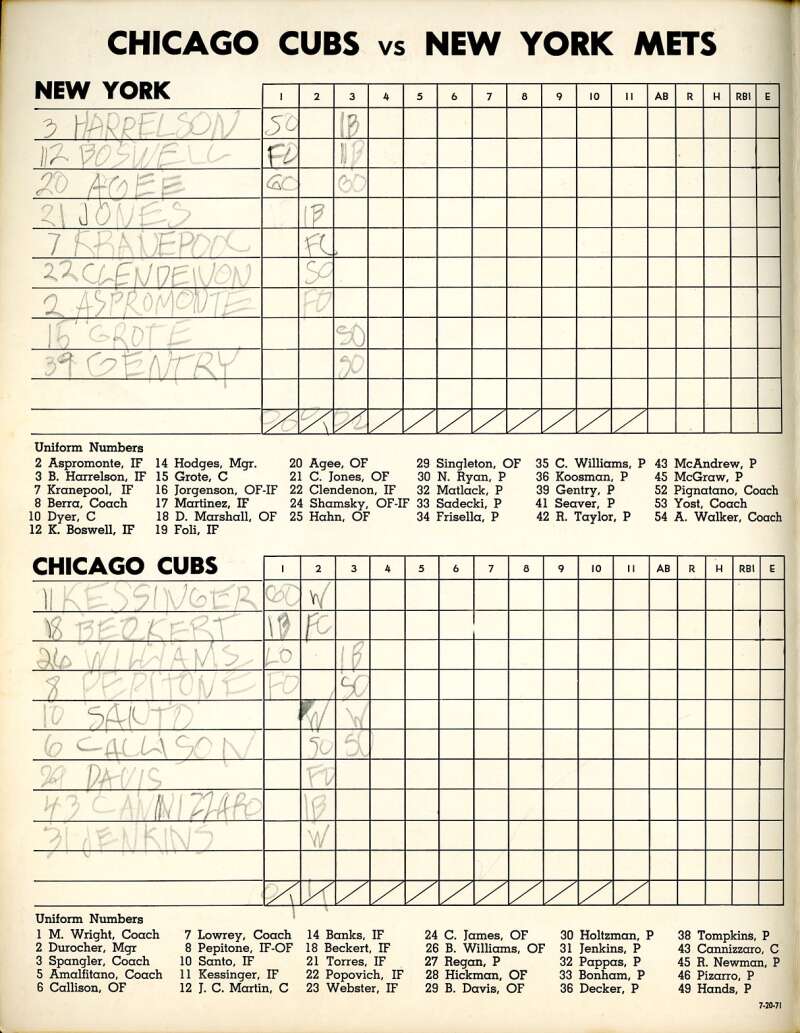 CHICAGO CUBS vs NEW YORK METS
NEW YORK 1 2 3 4 5 6 7 8 9 10 11 AB R H RBI E
3 HARRELSON SO 1B
12 BOSWELL FO 1B
20 AGEE GO GO
21 JONES 1B
7 KRANEPOOL FC
22 CLENDENON SO
2 ASPROMONTE FO
15 GROTE SO
39 GENTRY SO
Uniform Numbers
2 Aspromonte, IF 14 Hodges, Mgr. 20 Agee, OF 29 Singleton, OF 35 C. Williams, P 43 McAndrew, P
3 B. Harrelson, IF 15 Grote, C 21 C. Jones, OF 30 N. Ryan, P 36 Koosman, P 45 McGraw, P
7 Kranepool, IF 16 Jorgenson, OF-IF 22 Clendenon, IF 32 Matlack, P 39 Gentry, P 52 Pignatano, Coach
8 Berra, Coach 17 Martinez, IF 24 Shamsky, OF-IF 33 Sadecki, P 41 Seaver, P 53 Yost, Coach
10 Dyer, C 18 D. Marshall, OF 25 Hahn, OF 34 Frisella, P 42 R. Taylor, P 54 A. Walker, Coach
12 K. Boswell, IF 19 Foli, IF
CHICAGO CUBS 1 2 3 4 5 6 7 8 9 10 11 AB R H RBI E
11 KESSINGER GO W
18 BECKERT 1B FC
26 WILLIAMS LO 1B
8 PEPITONE FO SO
10 SANTO W W
6 CALLISON SO SO
29 DAVIS FO
43 CANNIZZARO 1B
31 JENKINS W
Uniform Numbers
1 M. Wright, Coach 7 Lowrey, Coach 14 Banks, IF 24 C. James, OF 30 Holtzman, P 38 Tompkins, P
2 Durocher, Mgr 8 Pepitone, IF-OF 18 Beckert, IF 26 B. Williams, OF 31 Jenkins, P 43 Cannizzaro, C
3 Spangler, Coach 10 Santo, IF 21 Torres, IF 27 Regan, P 32 Pappas, P 45 R. Newman, P
5 Amalfitano, Coach 11 Kessinger, IF 22 Popovich, IF 28 Hickman, OF 33 Bonham, P 46 Pizarro, P
6 Callison, OF 12 J. C. Martin, C 23 Webster, IF 29 B. Davis, OF 36 Decker, P 49 Hands, P
7-20-71